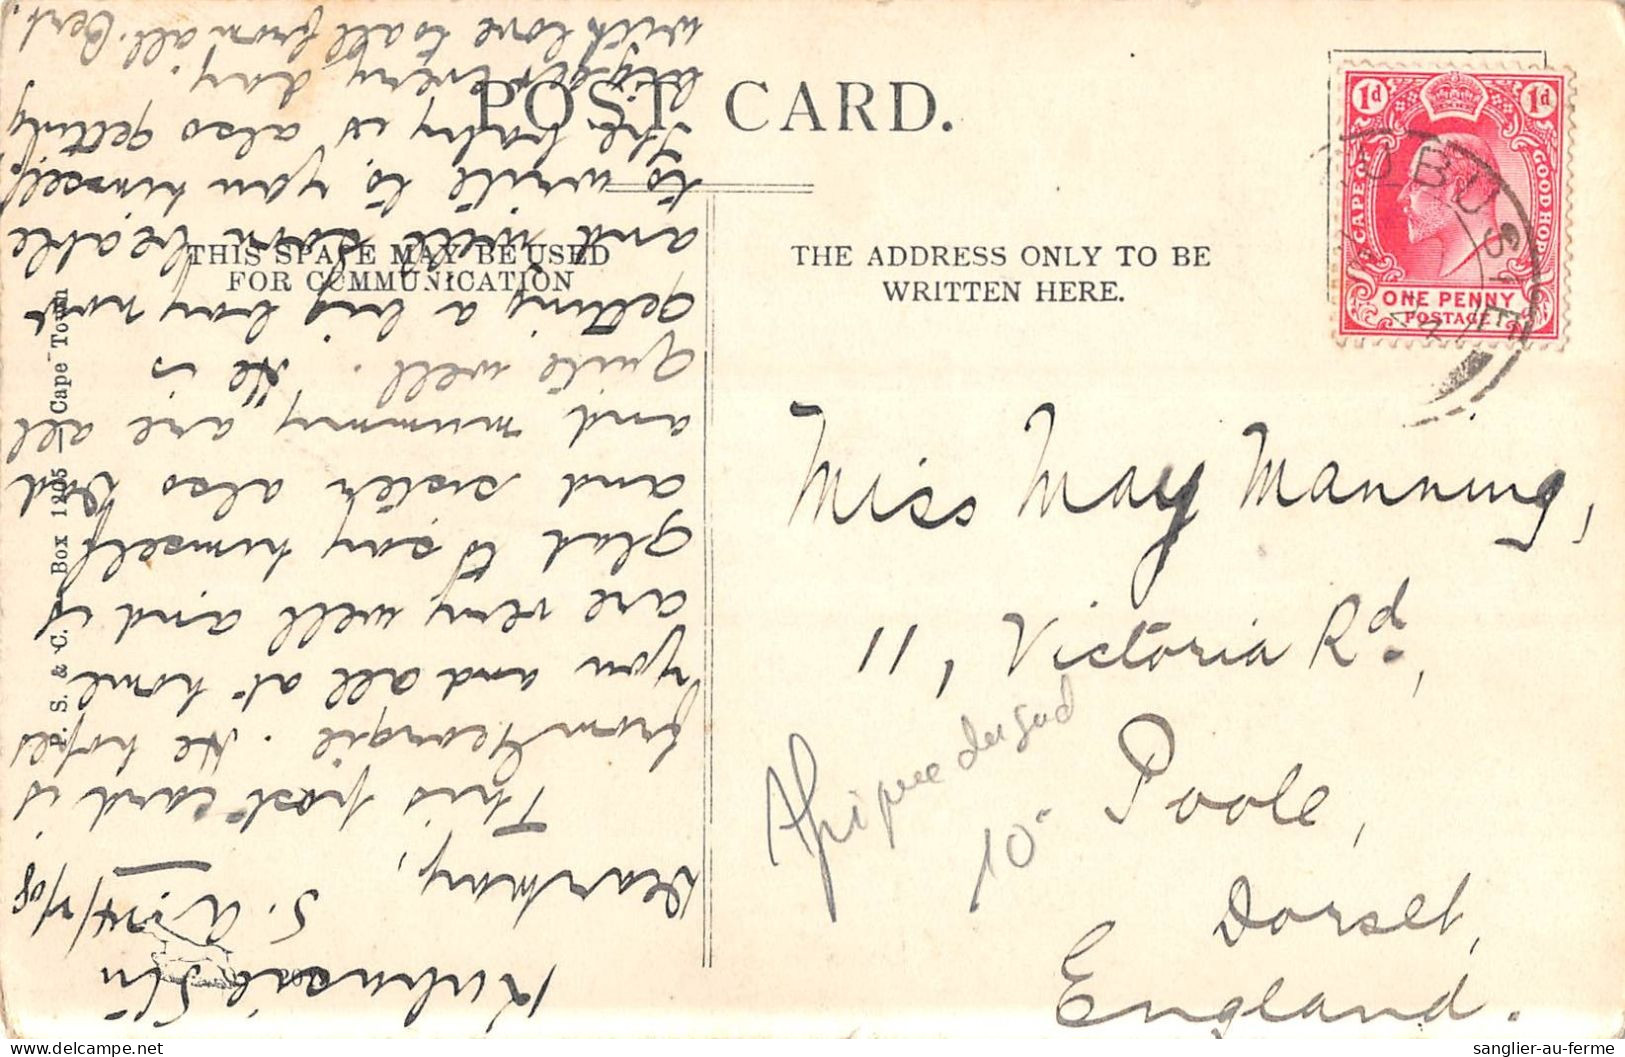 POST CARD.
THIS SPACE MAY BE USED
FOR COMMUNICATION
THE ADDRESS ONLY TO BE
WRITTEN HERE.
1d 1d
CAPE OF GOOD HOPE
ONE PENNY
POSTAGE
Miss May Manning,
11, Victoria Rd.,
Poole,
Dorset,
England.
Afrique du Sud
10-
P. S. & C. Box 1205 Cape Town
Kubusie Stn
S. A. 24/7/08
Dear May,
This post card is
from Georgie. He hopes
you and all at home
are very well and is
glad to say himself
and sister also Dad
and mummy are all
quite well. He is
getting a big boy now
and will soon be able
to write to you himself.
The baby is also getting
bigger every day.
with love to all from all. Bert.
sanglier-au-ferme